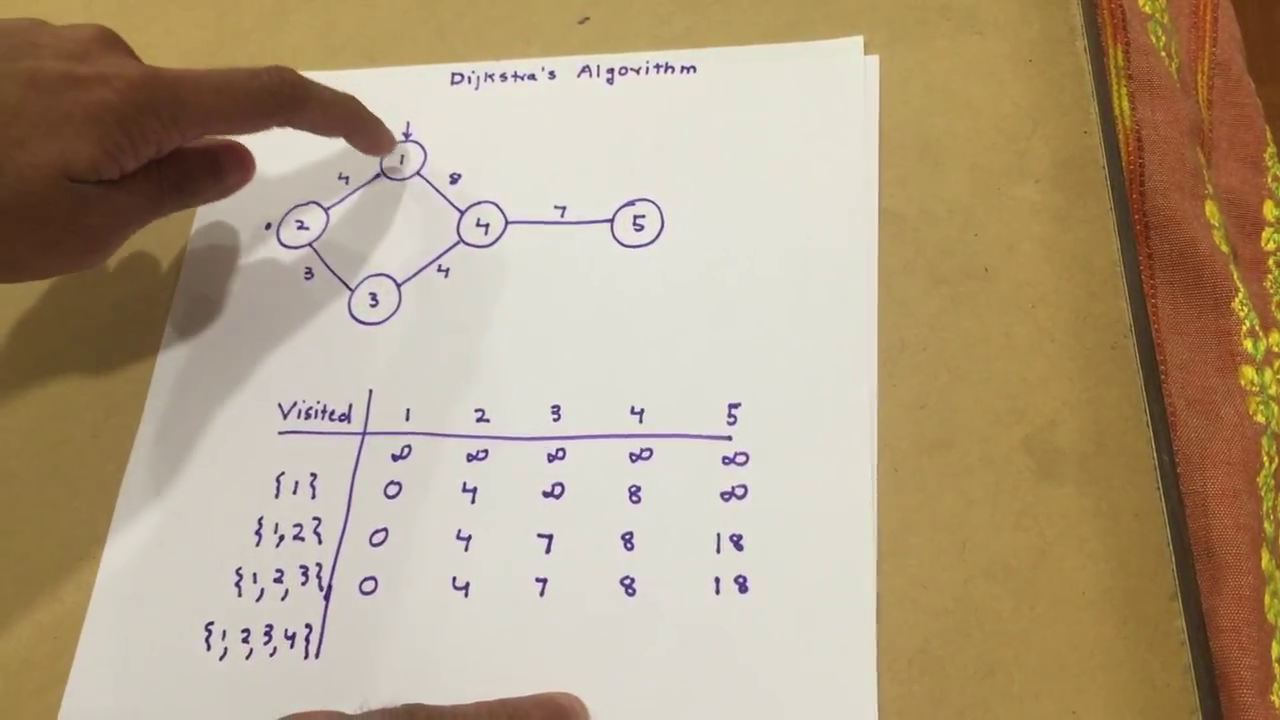 Dijkstra's Algorithm
↓
1
4 8
2 4 7 5
3 4
3
Visited 1 2 3 4 5
∞ ∞ ∞ ∞ ∞
{1} 0 4 ∞ 8 ∞
{1,2} 0 4 7 8 18
{1,2,3} 0 4 7 8 18
{1,2,3,4}